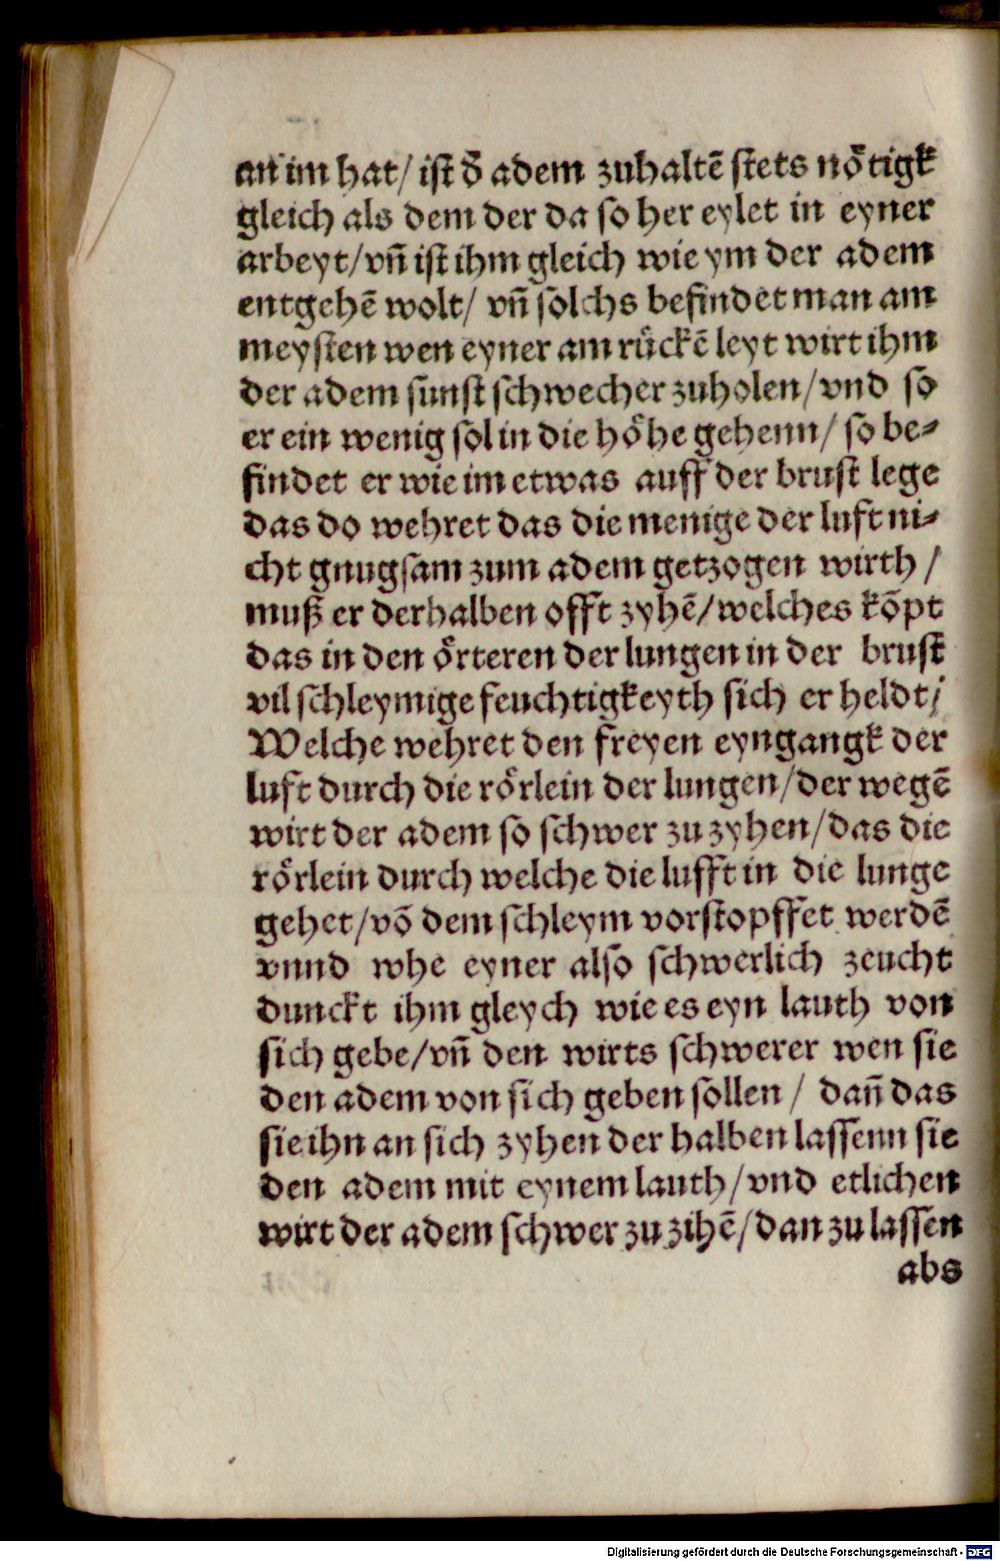 an im hat/ ist d̄ adem zuhaltē stets nötigk
gleich als dem der da so her eylet in eyner
arbeyt/vñ ist ihm gleich wie ym der adem
entgehē wolt/ vñ solchs befindet man am
meysten wen eyner am rückē leyt wirt ihm
der adem sunst schwecher zuholen/vnd so
er ein wenig sol in die höhe gehenn/ so be⸗
findet er wie im etwas auff der brust lege
das do wehret das die menige der luft ni⸗
cht gnugsam zum adem getzogen wirth /
muß er derhalben offt zyhē/welches kōpt
das in den örteren der lungen in der brust
vil schleymige feuchtigkeyth sich er heldt/
Welche wehret den freyen eyngangk der
luft durch die rörlein der lungen/der wegē
wirt der adem so schwer zu zyhen/das die
rörlein durch welche die lufft in die lunge
gehet/vō dem schleym vorstopffet werdē
vnnd whe eyner also schwerlich zeucht
dunckt ihm gleych wie es eyn lauth von
sich gebe/vñ den wirts schwerer wen sie
den adem von sich geben sollen / dañ das
sie ihn an sich zyhen der halben lassenn sie
den adem mit eynem lauth/vnd etlichen
wirt der adem schwer zu zihē/dan zu lassen
abs
Digitalisierung gefördert durch die Deutsche Forschungsgemeinschaft - DFG